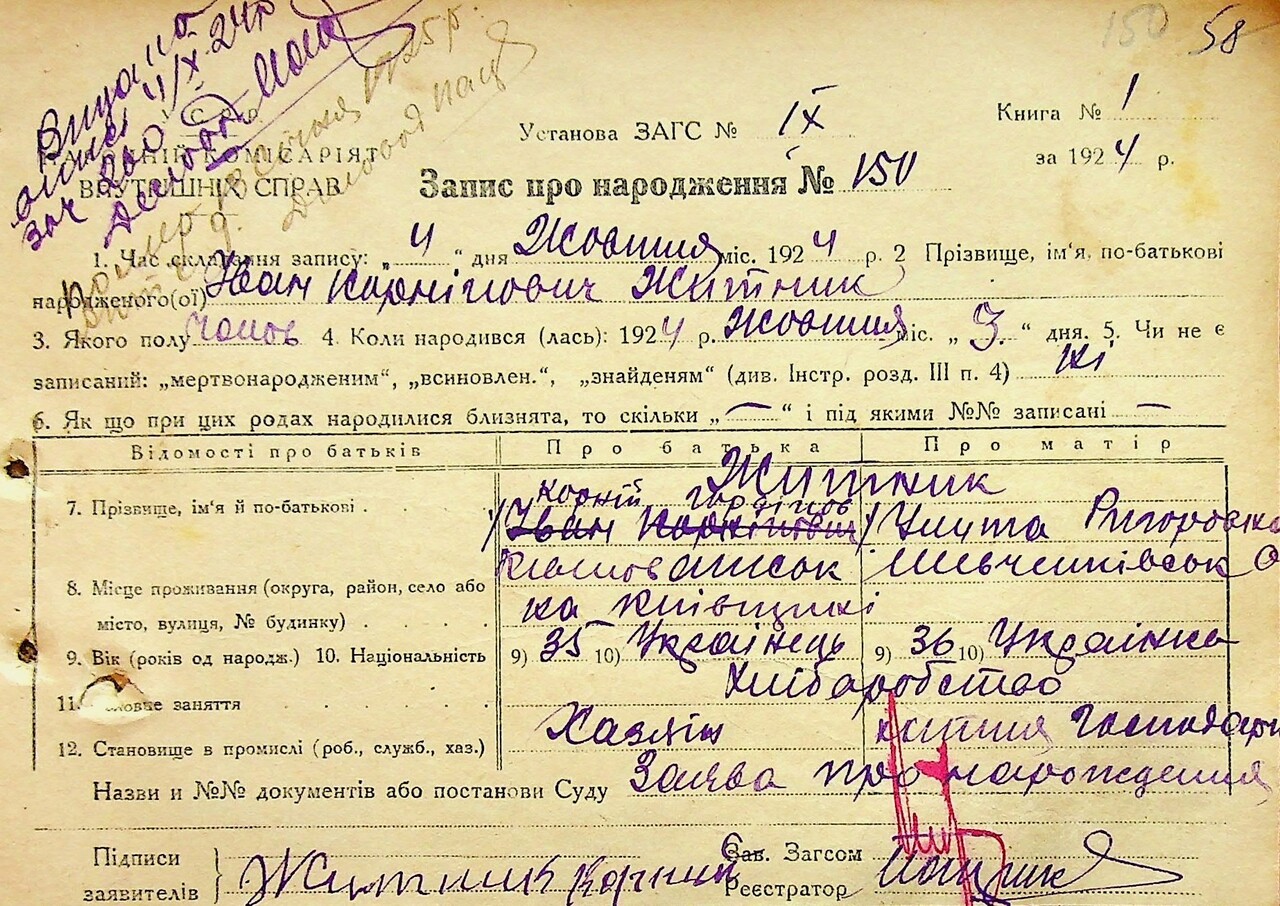 150 58
Видано
4/IX 24р
зач 200
У.С.Р.Р.
Установа ЗАГС № IX
Книга № 1
НАРОДНІЙ КОМІСАРІЯТ
ВНУТРІШНІХ СПРАВ
за 1924 р.
Запис про народження № 150
1. Час складання запису: „4“ дня Жовтня міс. 1924 р. 2 Прізвище, ім'я, по-батькові
народженого(ої) Іван Корнійович Житник
3. Якого полу Чолов 4. Коли народився (лась): 1924 р. Жовтня міс. „3.“ дня. 5. Чи не є
записаний: „мертвонародженим“, „всиновлен.“, „знайденям“ (див. Інстр. розд. III п. 4) Ні
6. Як що при цих родах народилися близнята, то скільки „—“ і під якими №№ записані —
Відомості про батьків Про батька Про матір
Житник
Корній
7. Прізвище, ім'я й по-батькові . Іван Корнійович Улита Ригоровна
8. Місце проживання (округа, район, село або
місто, вулиця, № будинку) . . . . на Київщині
9. Вік (років од народж.) 10. Національність 9) 35 10) Українець 9) 36 10) Українка
Хліборобство
11. Головне заняття
Хазяїн
12. Становище в промислі (роб., служб., хаз.)
Назви и №№ документів або постанови Суду Заява про нарождения
Підписи
заявителів Житник Корній
Зав. Загсом
Реєстратор